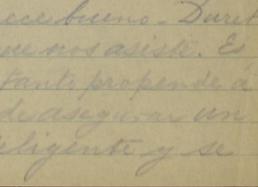 ece bueno - Duret
ue nos asiste. Es
tanto propende á
de asegurar un
eligente y se